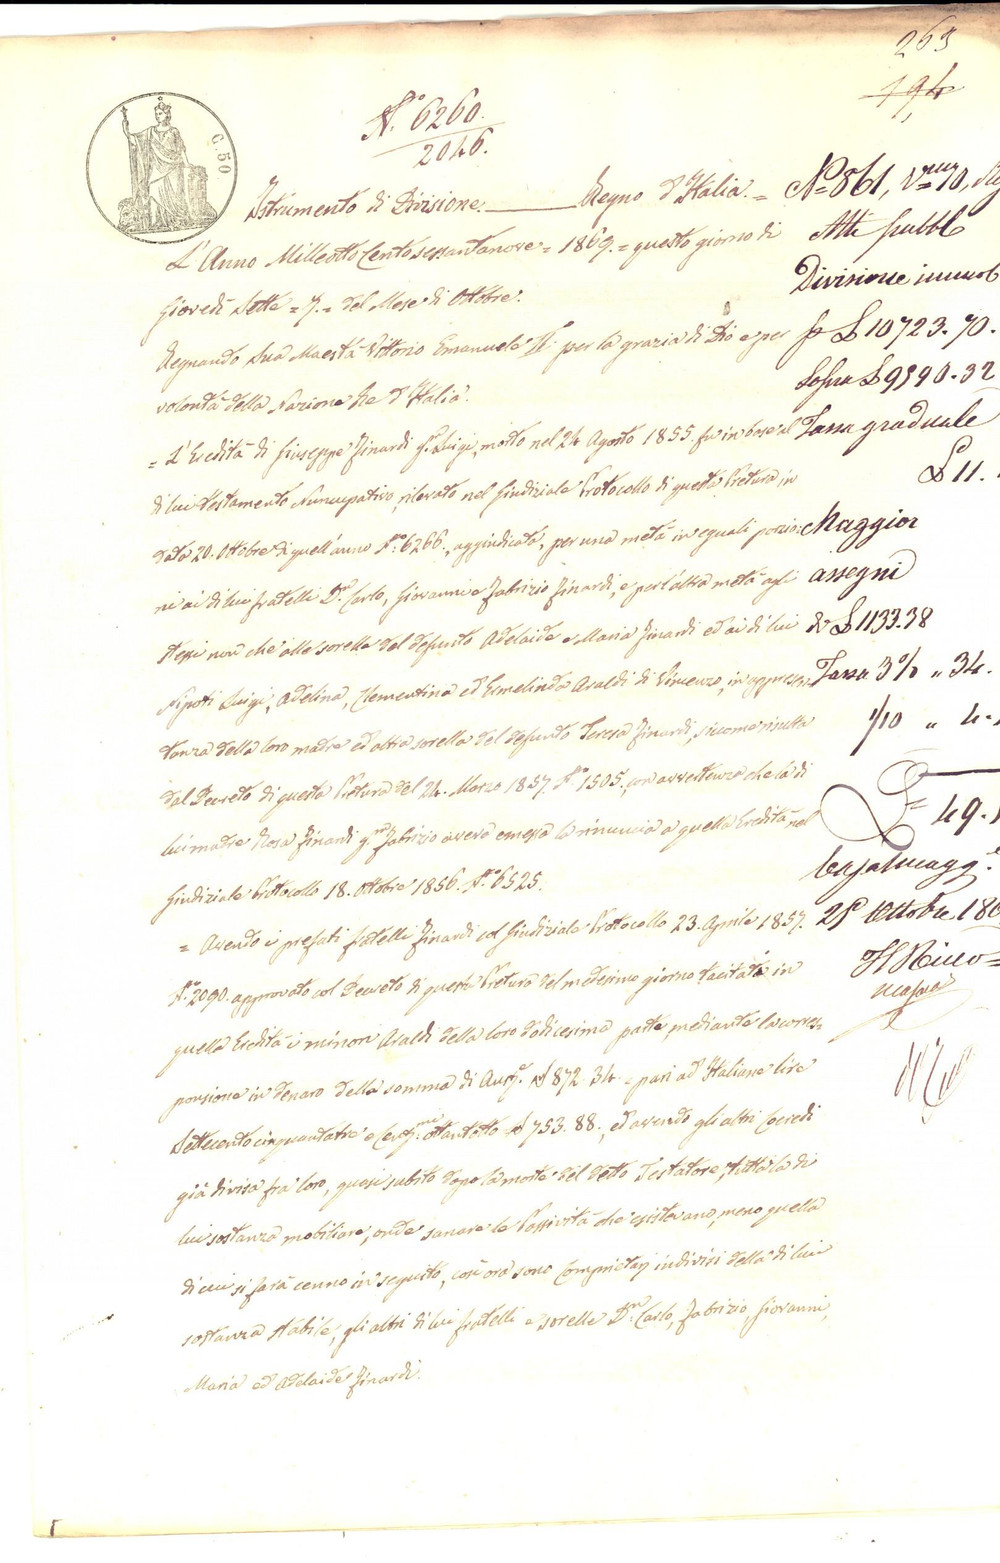 263
194
C. 50
N.° 6260.
2046.
Istrumento di Divisione. Regno d'Italia. =
L'Anno Milleotto Cento sessantanove = 1869. = questo giorno di
Giovedì Sette = 7. = del Mese di Ottobre.
Regnando Sua Maestà Vittorio Emanuele II. per la grazia di Dio e per
volontà della Nazione Re d'Italia.
= L'Eredità di Giuseppe Finardi fu Luigi, morto nel 24 Agosto 1855. fu in base al
di lui testamento Nuncupativo, rilevato nel Giudiziale Protocollo di questa Pretura in
data 20. Ottobre di quell'anno N.° 6266., aggiudicata, per una metà in eguali porzio:
ni ai di lui fratelli D.n Carlo, Giovanni e Fabrizio Finardi, e per l'altra metà agli
stessi non che alle sorelle del defunto Adelaide e Maria Finardi ed ai di lui
Nipoti Luigi, Adelina, Clementina ed Ermelinda Araldi di Vincenzo, in rappresen:
tanza della loro madre ed altra sorella del defunto Teresa Finardi, siccome risulta
dal Decreto di questa Pretura del 24. Marzo 1857. N.° 1505., con avvertenza che la di
lui madre Rosa Finardi q.m Fabrizio aveva emessa la rinuncia a quella Eredità nel
Giudiziale Protocollo 18. Ottobre 1856. N.° 6525.
= Avendo i prefati fratelli Finardi col Giudiziale Protocollo 23. Aprile 1857.
N.° 2090. approvato col Decreto di questa Pretura del medesimo giorno tacitata in
quella Eredità i minori Araldi della loro dodicesima parte, mediante la corres=
ponsione in denaro della somma di 872. 34. = pari ad Italiane lire
Settecento cinquantatre e Cent.mi ottantotto 753. 88., ed avendo gli altri Coeredi
già divisa fra loro, quasi subito dopo la morte del detto Testatore, tutta la di
lui sostanza mobiliare, onde sanare le Passività che esistevano, meno quella
di cui si farà cenno in seguito, così ora sono Comproprietarj indivisi della di lui
sostanza stabile, gli altri di lui fratelli e sorelle D.n Carlo, Fabrizio, Giovanni,
Maria ed Adelaide Finardi.
N° 861, 70,
Atti pubbl
Divisione immob
p £ 10723. 70.
Sopra £ 9590. 32
Tassa graduale
£ 11.
Maggior
assegni
di £ 1133.38
Tassa 3% " 34.
1/10 " 4.
£ 49.
Casalmagg.e
25 Ottobre 186
Il Ricev=